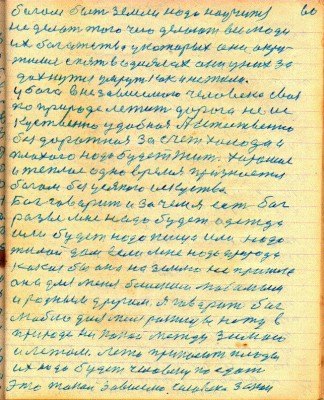 богом быт земли надо научится 60
не делат того чего делают вы люди
их богатства у которых они окру
жилис спят в одеялах они у них за
дохнутся умрут как не жило.
у бога в независимого человека своя
по природе лежит дорога не ис
куственно удобная А естественно
без доротная За счет холода и
плохого надо будет жит. Хорошое
и теплое одно время признается
богом без усякого искуства.
Бог говарит а зачем я ест бог
разве мне надо будет одежда
или будет надо пища или надо
жилой дом если мне надо природа
какая бы она на землю не пришла
она для меня близкая моя милая
и родныя другим. Я говарю бог
любю для меня разницы нету в
природе ни какой между зимою
и летом. Лето приносит плоды
их надо будет человеку поедат
Это такой зависимо человека закон